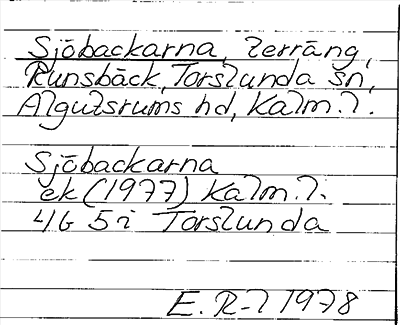 Sjöbackarna, terräng,
Runsbäck, Torslunda sn,
Algutsrums hd, Kalm. l.
Sjöbackarna
ek (1977) Kalm. l.
4G 5i Torslunda
E. R-l 1978